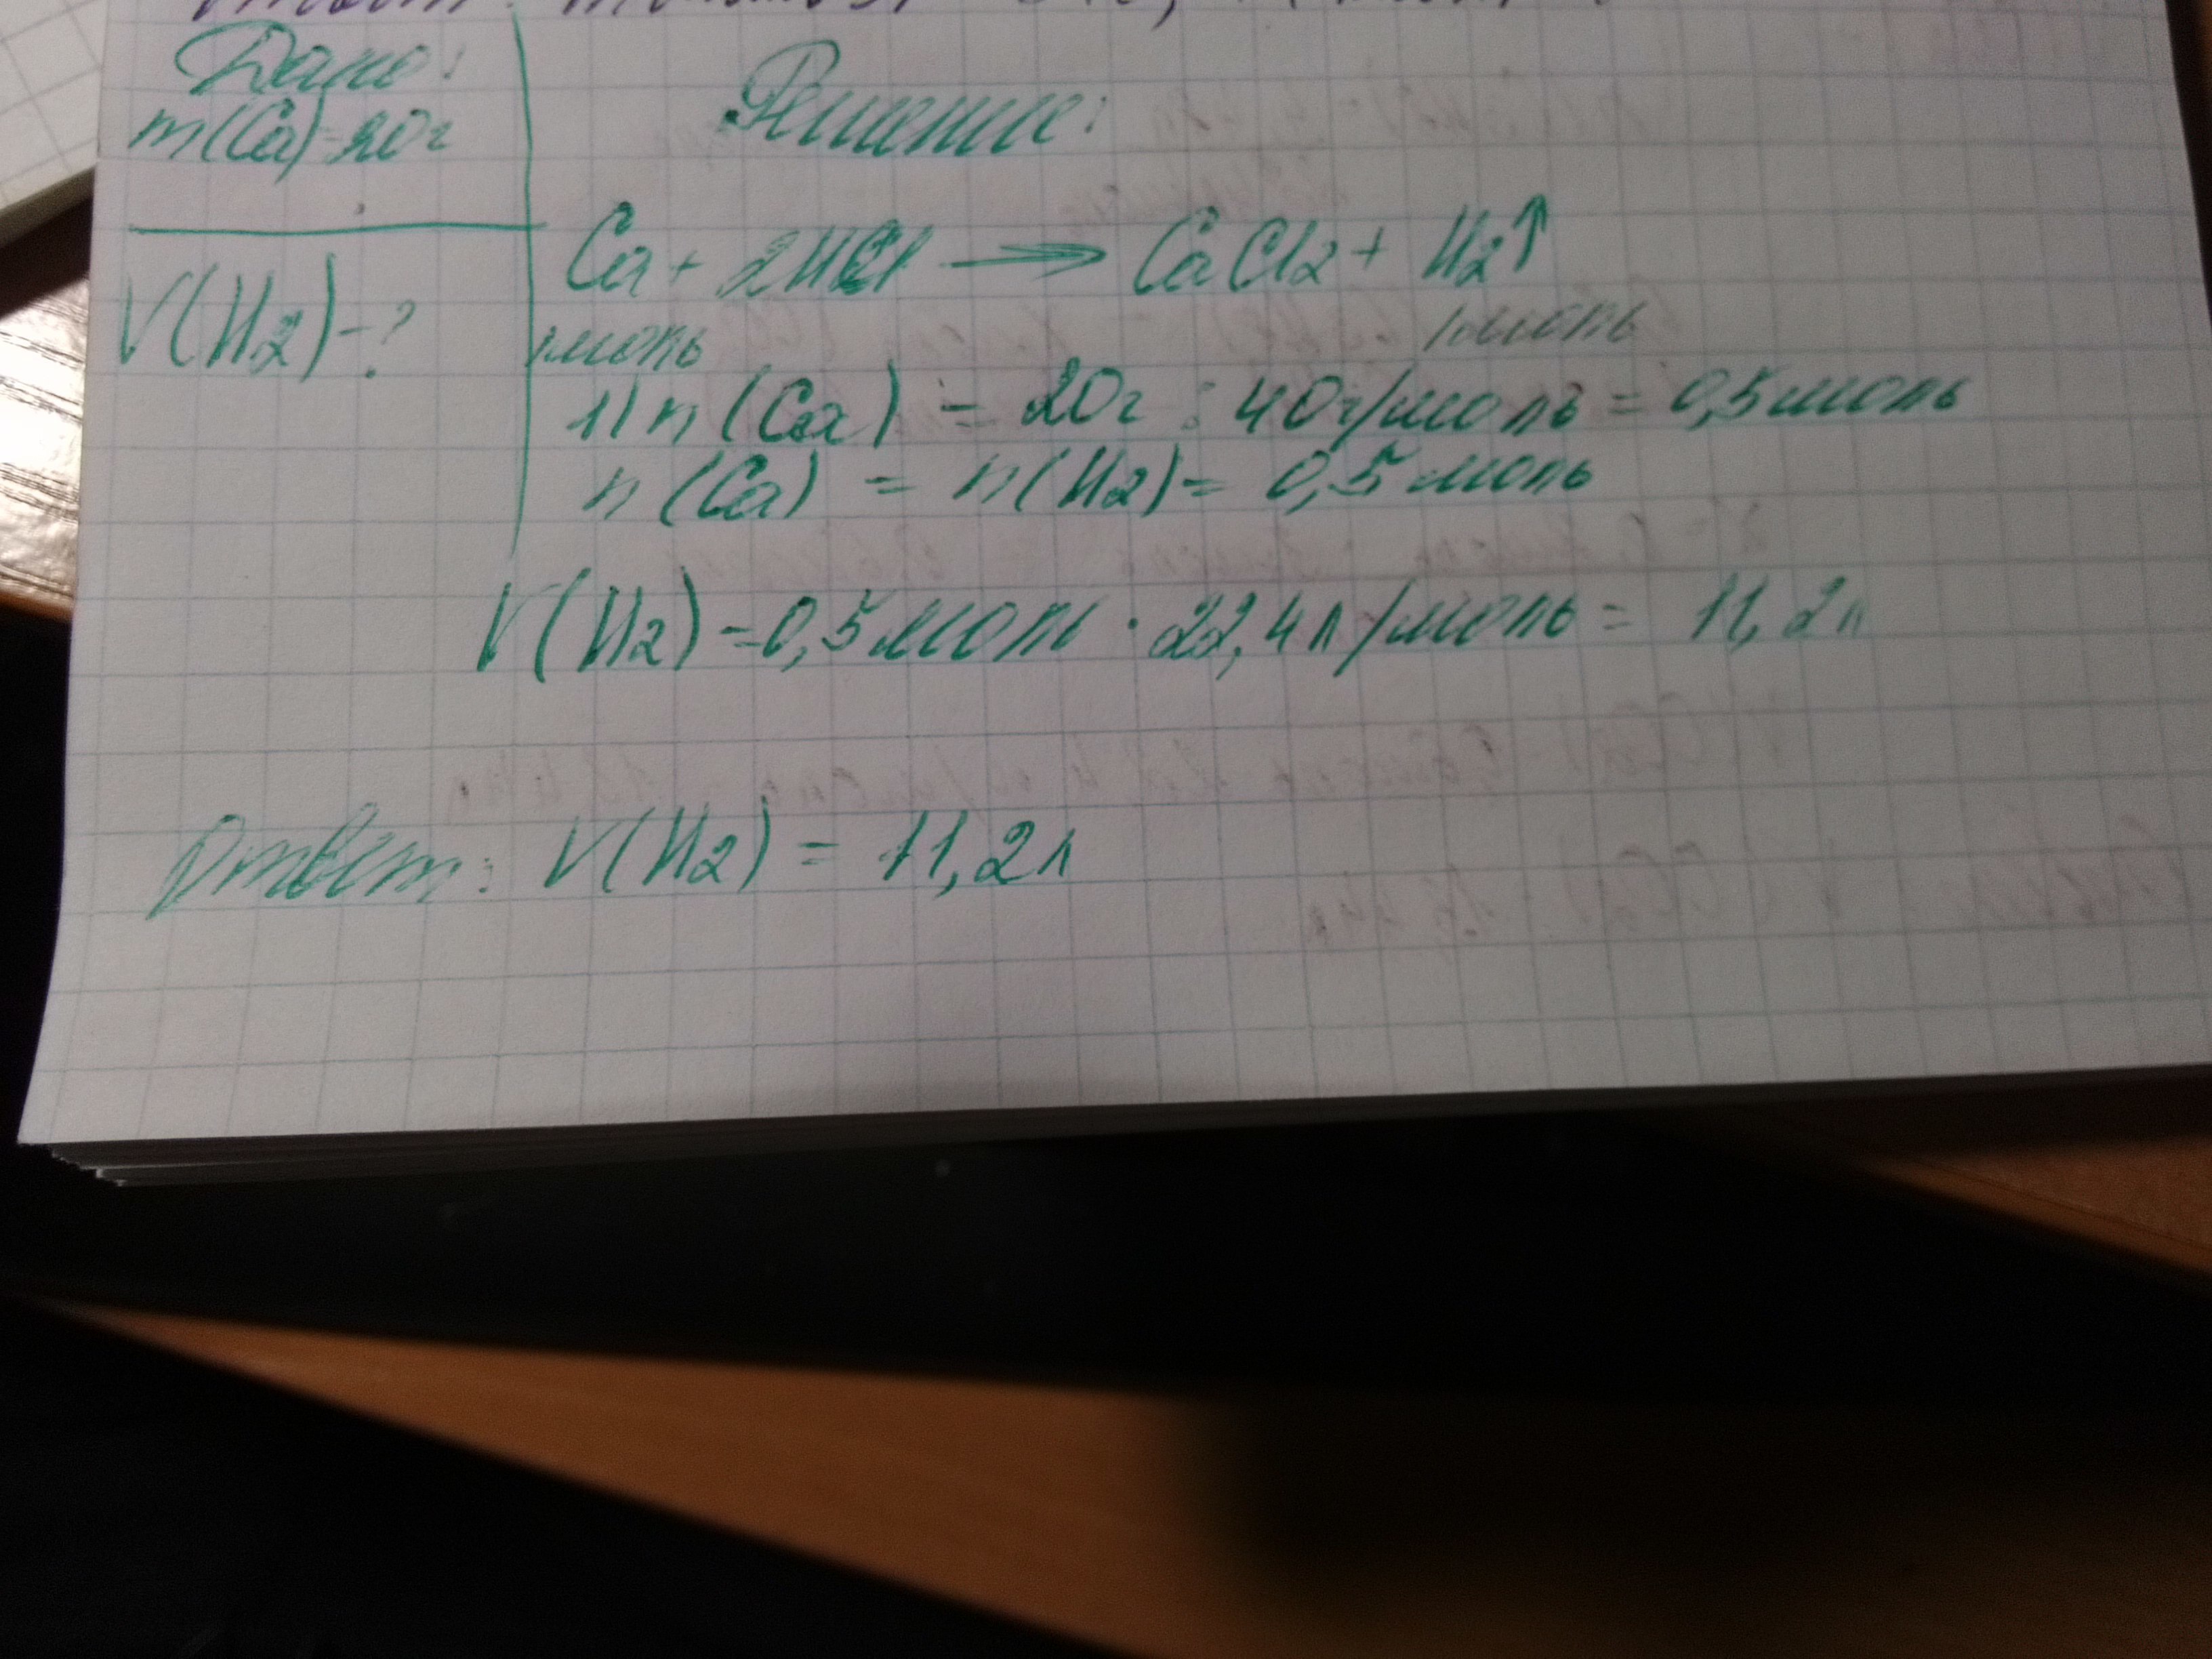 Дано:
m(Ca)=20г
V(H2)-?
Решение:
Ca + 2HCl → CaCl2 + H2↑
1моль 1моль
1) n (Ca) = 20г : 40г/моль = 0,5моль
n (Ca) = n(H2) = 0,5моль
V(H2) = 0,5моль · 22,4л/моль = 11,2л
Ответ: V(H2) = 11,2л